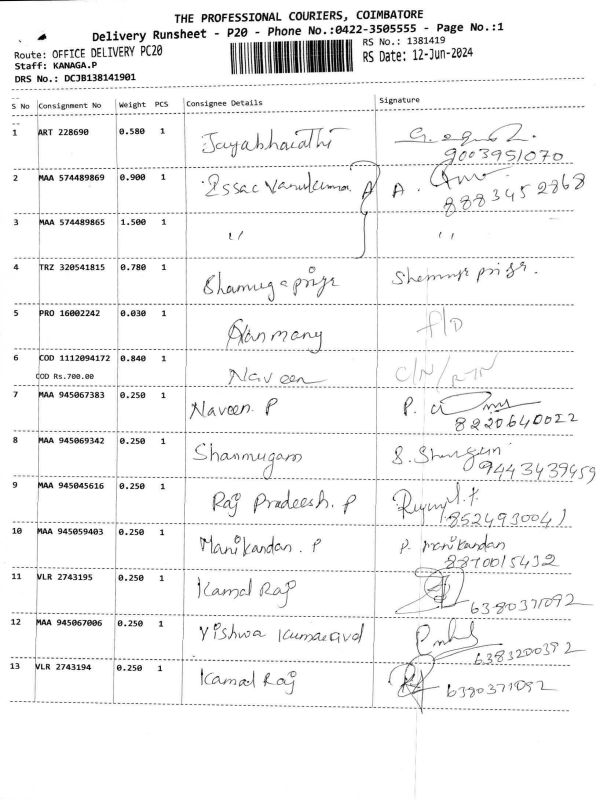 THE PROFESSIONAL COURIERS, COIMBATORE
Delivery Runsheet - P20 - Phone No.:0422-3505555 - Page No.:1
Route: OFFICE DELIVERY PC20
Staff: KANAGA.P
DRS No.: DCJB138141901
RS No.: 1381419
RS Date: 12-Jun-2024
S No Consignment No Weight PCS Consignee Details Signature
1 ART 228690 0.580 1 Jayabharathi
9003951070
2 MAA 574489869 0.900 1 A A.
8883452868
3 MAA 574489865 1.500 1 '' ''
4 TRZ 320541815 0.780 1 Shanmuga priya
5 PRO 16002242 0.030 1
6 COD 1112094172 0.840 1 Naveen C/N/RTN
COD Rs.700.00
7 MAA 945067383 0.250 1 Naveen. P P.
8220640022
8 MAA 945069342 0.250 1 Shanmugam S.
9443439459
9 MAA 945045616 0.250 1 Raj Pradeesh. P
8524930041
10 MAA 945059403 0.250 1 Manikandan. P P. Manikandan
8870015432
11 VLR 2743195 0.250 1 Kamal Raj
6380371092
12 MAA 945067006 0.250 1 Vishwa
6383200392
13 VLR 2743194 0.250 1 Kamal Raj
6380371092